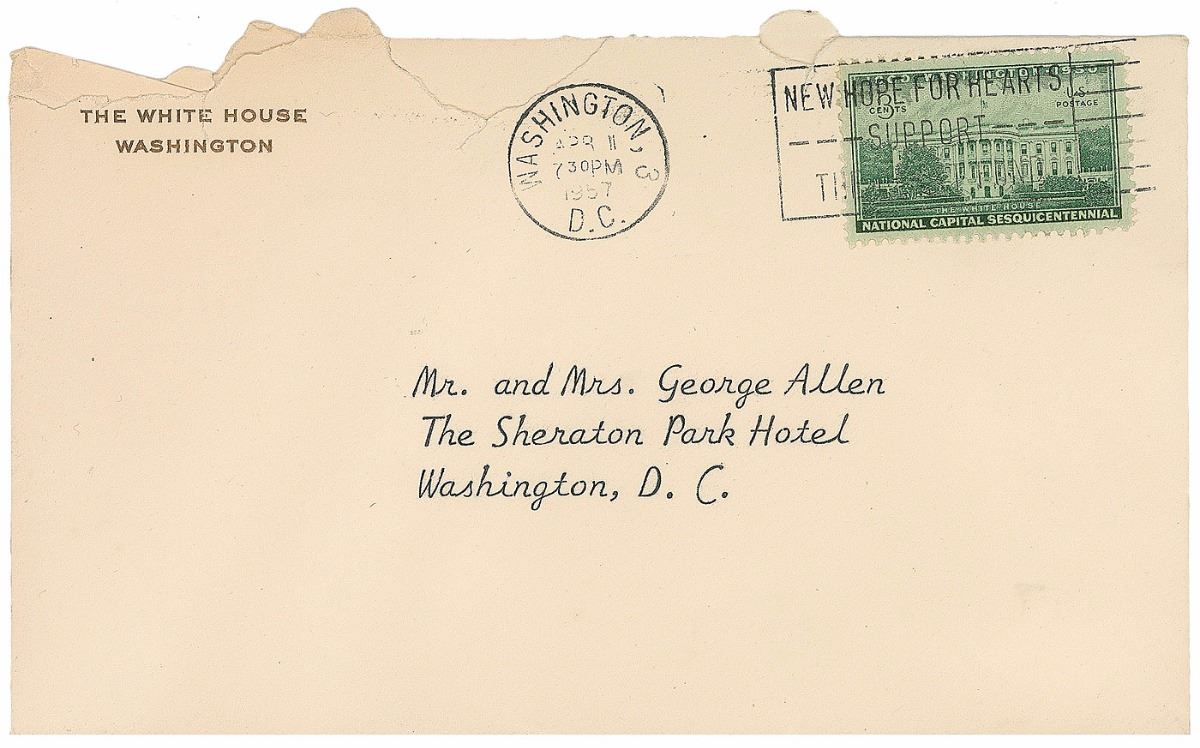 THE WHITE HOUSE
WASHINGTON
WASHINGTON, 3
APR 11
7 30 PM
1957
D.C.
NEW HOPE FOR HEARTS
SUPPORT
3
CENTS
U.S.
POSTAGE
THE WHITE HOUSE
NATIONAL CAPITAL SESQUICENTENNIAL
Mr. and Mrs. George Allen
The Sheraton Park Hotel
Washington, D. C.